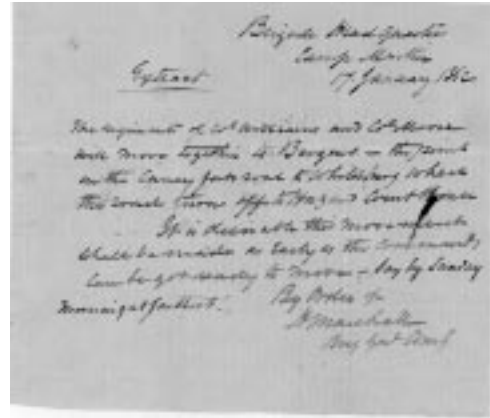 Brigade Head Quarters
Camp Martin
17 January 1862
Extract
The regiment of Col Williams and Col Moore
will move together to Bergers – the point
on the Caney fork road to Whitesburg where
the road turns off to Hazard Court House
It is desirable this movement
shall be made as early as the commands
can be got ready to move – say by Sunday
morning at furthest.
By Order of
H Marshall
Brig Genl